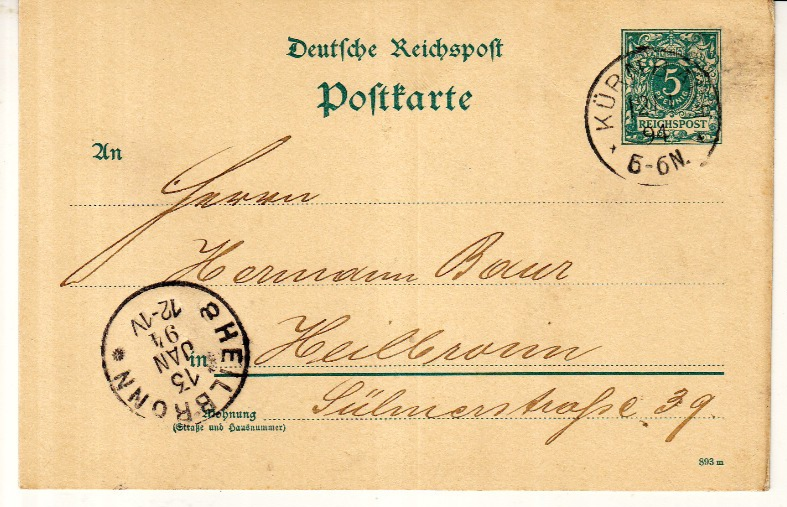 Deutsche Reichspost
Postkarte
5
PFENNIG
REICHSPOST
94
5-6N.
An
Herrn
Hermann Baur
in Heilbronn
Sülmerstraße 39.
Wohnung
(Straße und Hausnummer)
HEILBRONN
13
JAN
94
12-1V
893 m